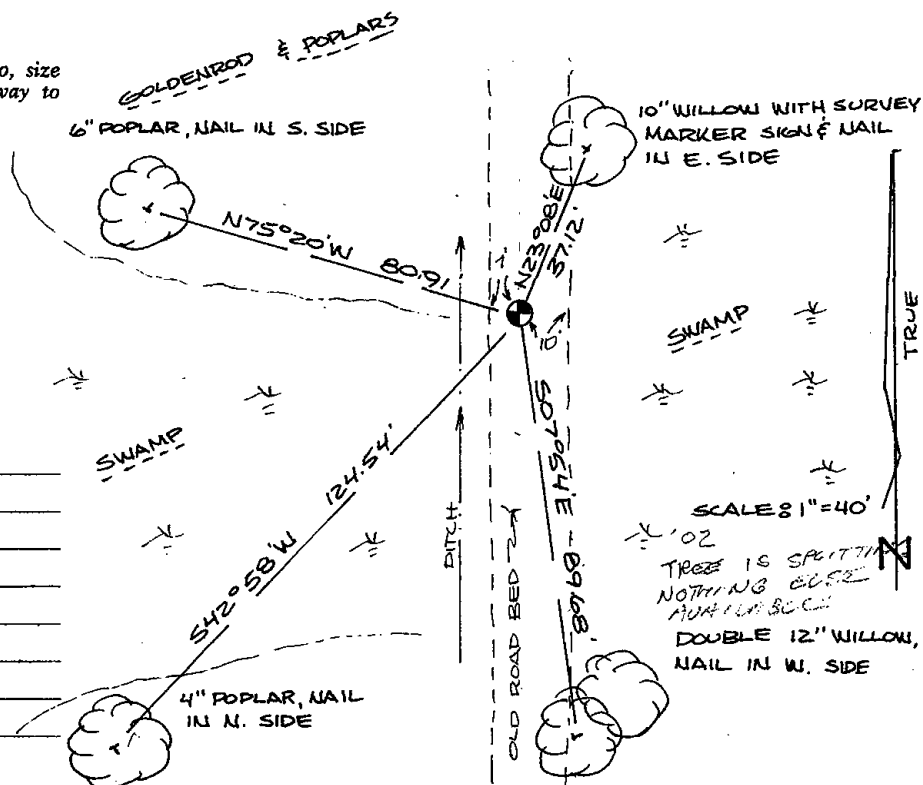 o, size
way to
GOLDENROD & POPLARS
6" POPLAR, NAIL IN S. SIDE
10" WILLOW WITH SURVEY
MARKER SIGN & NAIL
IN E. SIDE
N75°20'W 80.91
N23°08'E
37.12'
10'
SWAMP
TRUE
SWAMP
S42°58'W 124.54'
DITCH
OLD ROAD BED
S07°54'E 89.68'
SCALE: 1"=40'
'02
TREE IS SPLITTIN
NOTHING ELSE
AVAILABLE
N
DOUBLE 12" WILLOW,
NAIL IN W. SIDE
4" POPLAR, NAIL
IN N. SIDE